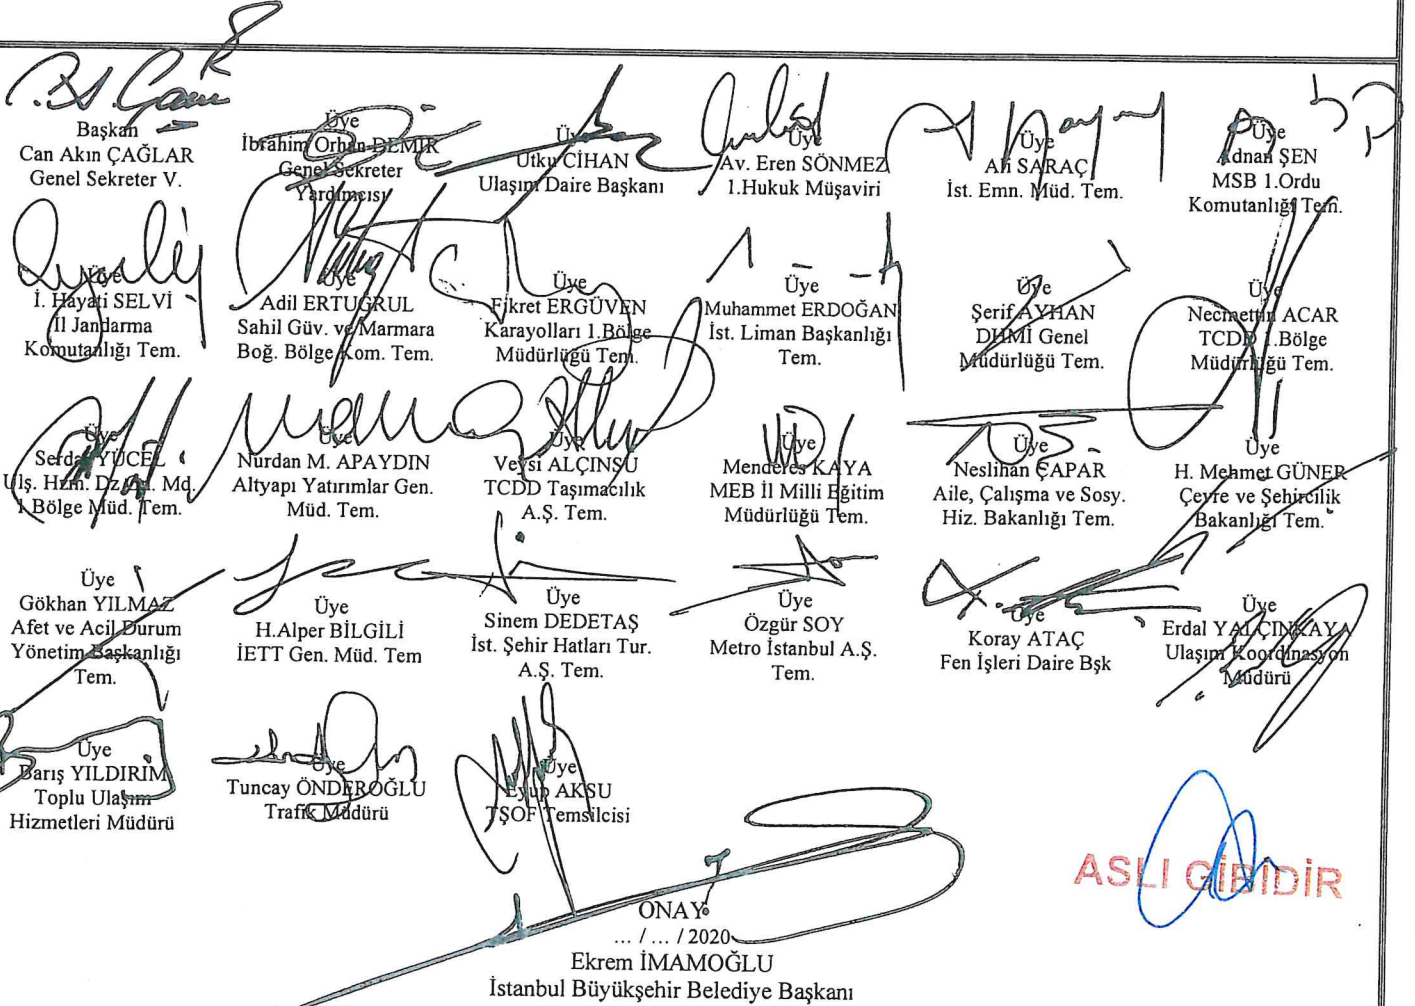 Başkan
Can Akın ÇAĞLAR
Genel Sekreter V.
Üye
İbrahim Orhan DEMİR
Genel Sekreter
Yardımcısı
Üye
Utku CİHAN
Ulaşım Daire Başkanı
Üye
Av. Eren SÖNMEZ
1.Hukuk Müşaviri
Üye
Ali SARAÇ
İst. Emn. Müd. Tem.
Üye
Adnan ŞEN
MSB 1.Ordu
Komutanlığı Tem.
Üye
İ. Hayati SELVİ
İl Jandarma
Komutanlığı Tem.
Üye
Adil ERTUĞRUL
Sahil Güv. ve Marmara
Boğ. Bölge Kom. Tem.
Üye
Fikret ERGÜVEN
Karayolları 1.Bölge
Müdürlüğü Tem.
Üye
Muhammet ERDOĞAN
İst. Liman Başkanlığı
Tem.
Üye
Şerif AYHAN
DHMİ Genel
Müdürlüğü Tem.
Üye
Necmettin ACAR
TCDD 1.Bölge
Müdürlüğü Tem.
Üye
Serdar YÜCEL
Ulş. Hzm. Dz. Md.
1.Bölge Müd. Tem.
Üye
Nurdan M. APAYDIN
Altyapı Yatırımlar Gen.
Müd. Tem.
Üye
Veysi ALÇINSU
TCDD Taşımacılık
A.Ş. Tem.
Üye
Menderes KAYA
MEB İl Milli Eğitim
Müdürlüğü Tem.
Üye
Neslihan ÇAPAR
Aile, Çalışma ve Sosy.
Hiz. Bakanlığı Tem.
Üye
H. Mehmet GÜNER
Çevre ve Şehircilik
Bakanlığı Tem.
Üye
Gökhan YILMAZ
Afet ve Acil Durum
Yönetim Başkanlığı
Tem.
Üye
H.Alper BİLGİLİ
İETT Gen. Müd. Tem
Üye
Sinem DEDETAŞ
İst. Şehir Hatları Tur.
A.Ş. Tem.
Üye
Özgür SOY
Metro İstanbul A.Ş.
Tem.
Üye
Koray ATAÇ
Fen İşleri Daire Bşk
Üye
Erdal YALÇINKAYA
Ulaşım Koordinasyon
Müdürü
Üye
Barış YILDIRIM
Toplu Ulaşım
Hizmetleri Müdürü
Üye
Tuncay ÖNDEROĞLU
Trafik Müdürü
Üye
Eyup AKSU
TŞOF Temsilcisi
ASLI GİBİDİR
ONAY
... / ... / 2020
Ekrem İMAMOĞLU
İstanbul Büyükşehir Belediye Başkanı